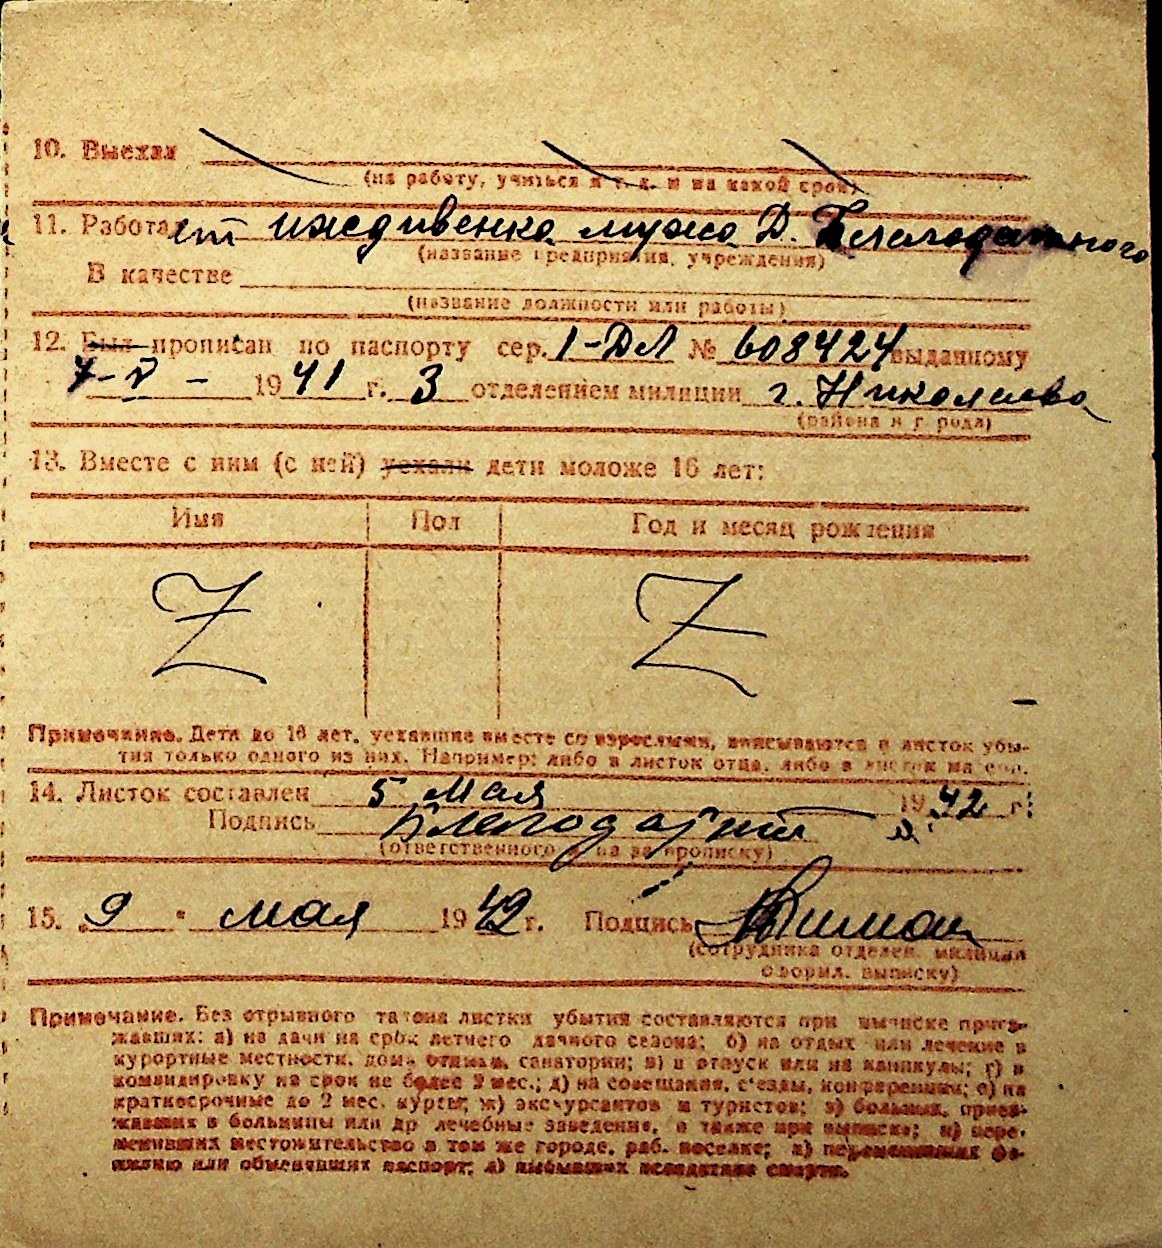 10. Выехал
(на работу, учиться и т. д. и на какой срок)
11. Работает иждивенка мужа Д. Благодатного
(название предприятия, учреждения)
В качестве
(название должности или работы)
12. Был прописан по паспорту сер. 1-ДЛ № 608424 выданному
7-V- 1941 г. 3 отделением милиции г. Николаева
(района и города)
13. Вместе с ним (с ней) уехали дети моложе 16 лет:
Имя Пол Год и месяц рождения
Z Z
Примечание. Дети до 16 лет, уехавшие вместе со взрослыми, вписываются в листок убы-
тия только одного из них. Например: либо в листок отца, либо в листок матери.
14. Листок составлен 5 мая 1942 г.
Подпись
(ответственного лица за прописку)
15. 9 " мая 1942 г. Подпись
(сотрудника отделен. милиции
оформл. выписку)
Примечание. Без отрывного талона листки убытия составляются при выписке приез-
жавших: а) на дачи на срок летнего дачного сезона; б) на отдых или лечение в
курортные местности, дома отдыха, санатории; в) в отпуск или на каникулы; г) в
командировку на срок не более 2 мес.; д) на совещания, с'езды, конференции; е) на
краткосрочные до 2 мес. курсы; ж) экскурсантов и туристов; з) больных, приез-
жавших в больницы или др. лечебные заведения, а также при выписке; и) пере-
менивших местожительство в том же городе, раб. поселке; к) переменивших фа-
милию или обменявших паспорт; л) выбывших вследствие смерти.